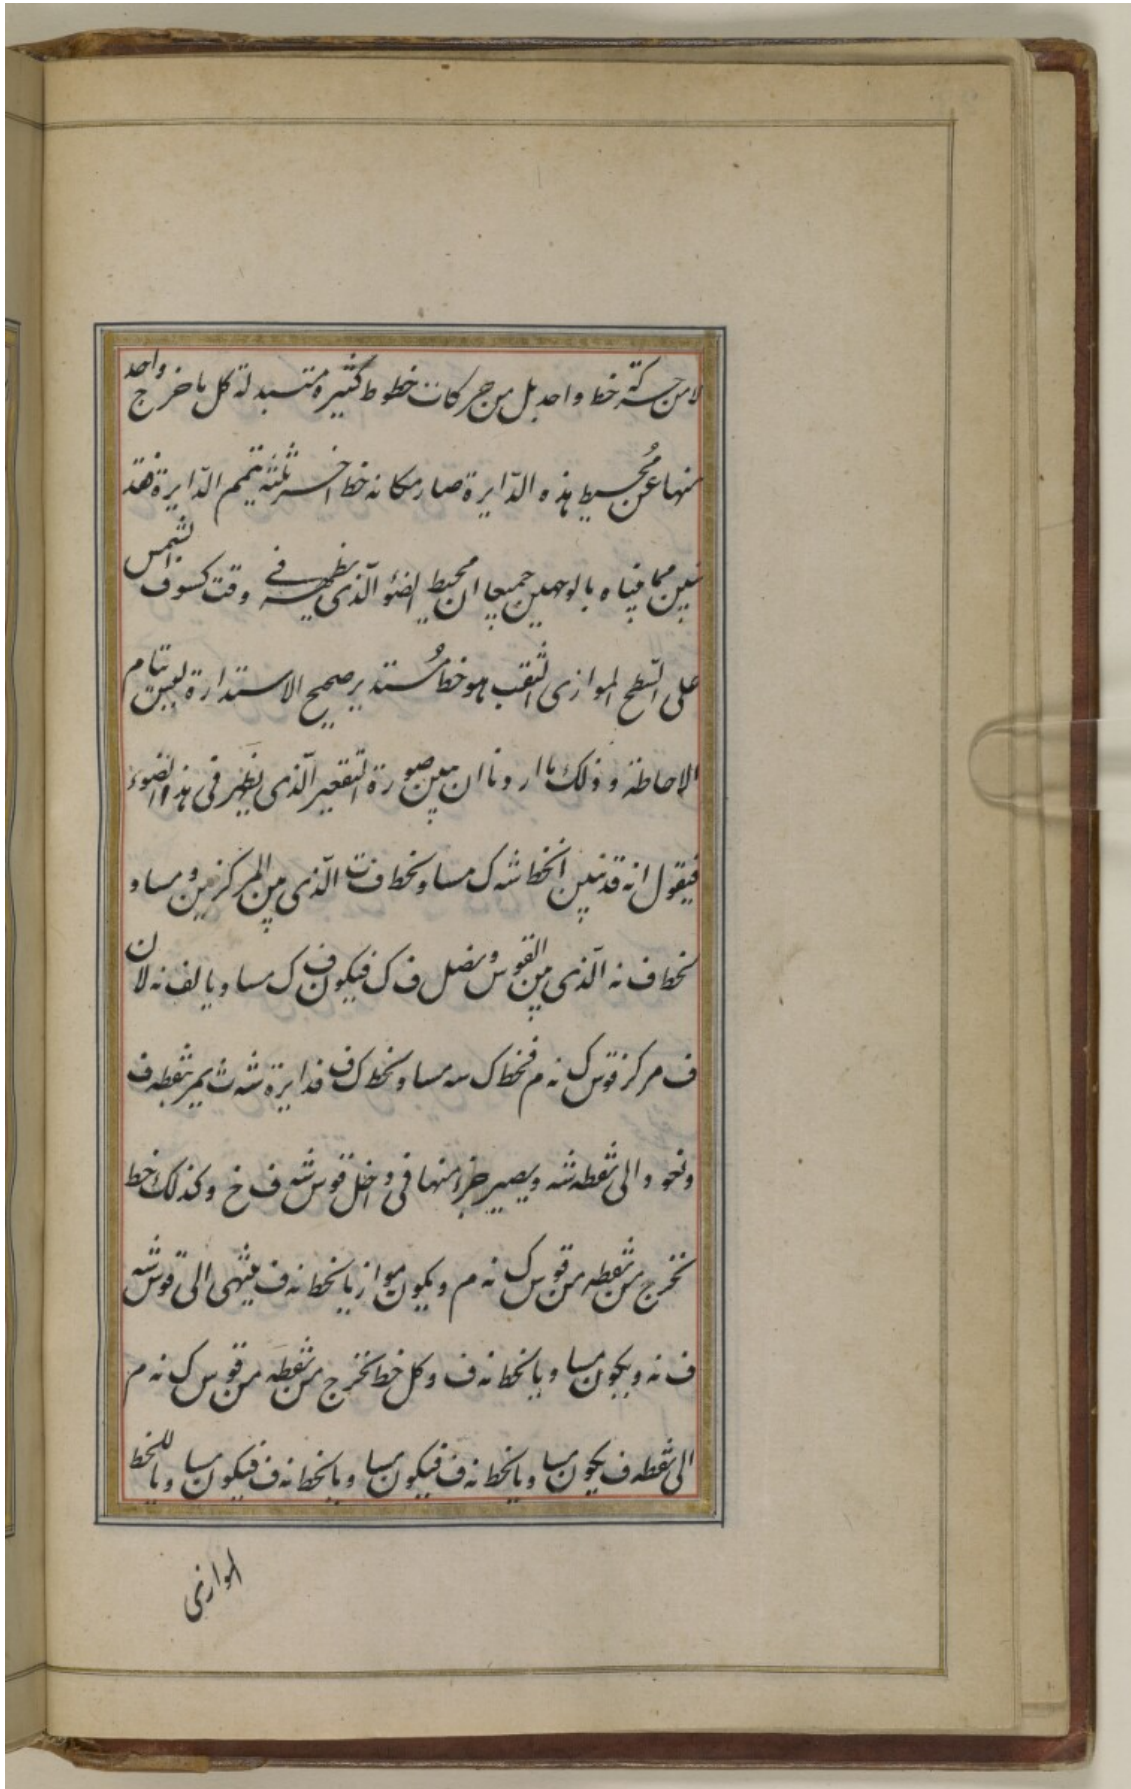 لا من حركة خط واحد بل من حركات خطوط كثيرة متبدلة كل ما خرج واحد
منها عن محيط هذه الدّايرة صار مكانه خط اخر يتمم الدّايرة فقد
تبين مما بيناه بالوجهين جميعا ان محيط الضؤ الّذى يظهر فى وقت كسوف الشمس
على السّطح الموازى الثقب هو خط مُستدير صحيح الاستدارة ليس بتام
الاحاطة وذلك ما اردنا ان نبين صورة التقعير الّذى يظهر فى هذا الضوء
فيقول انه قد تبين انخط شه ك مساو لخط ف ت الّذى بين المركزين ومساو
لخط ف نه الّذى بين القوس ونصل ف ك فيكون ف ك مساويا لف نه لان
ف مركز قوس ك نه م فخط ك سه مساو لخط ك ف فدايرة شه ث يمر بنقطه ف
ونحو والى نقطه شه ويصير جزء منها فى داخل قوس شه ف خ وكذلك خط
نخرج من نقطه من قوس ك نه م ويكون موازيا لخط نه ف ينتهى الى قوس شه
ف نه ويكون مساويا لخط نه ف وكل خط نخرج من نقطه من قوس ك نه م
الى نقطه ف يكون مساويا لخط نه ف فيكون مساويا لخط نه ف فيكون مساويا للخط
الموازى